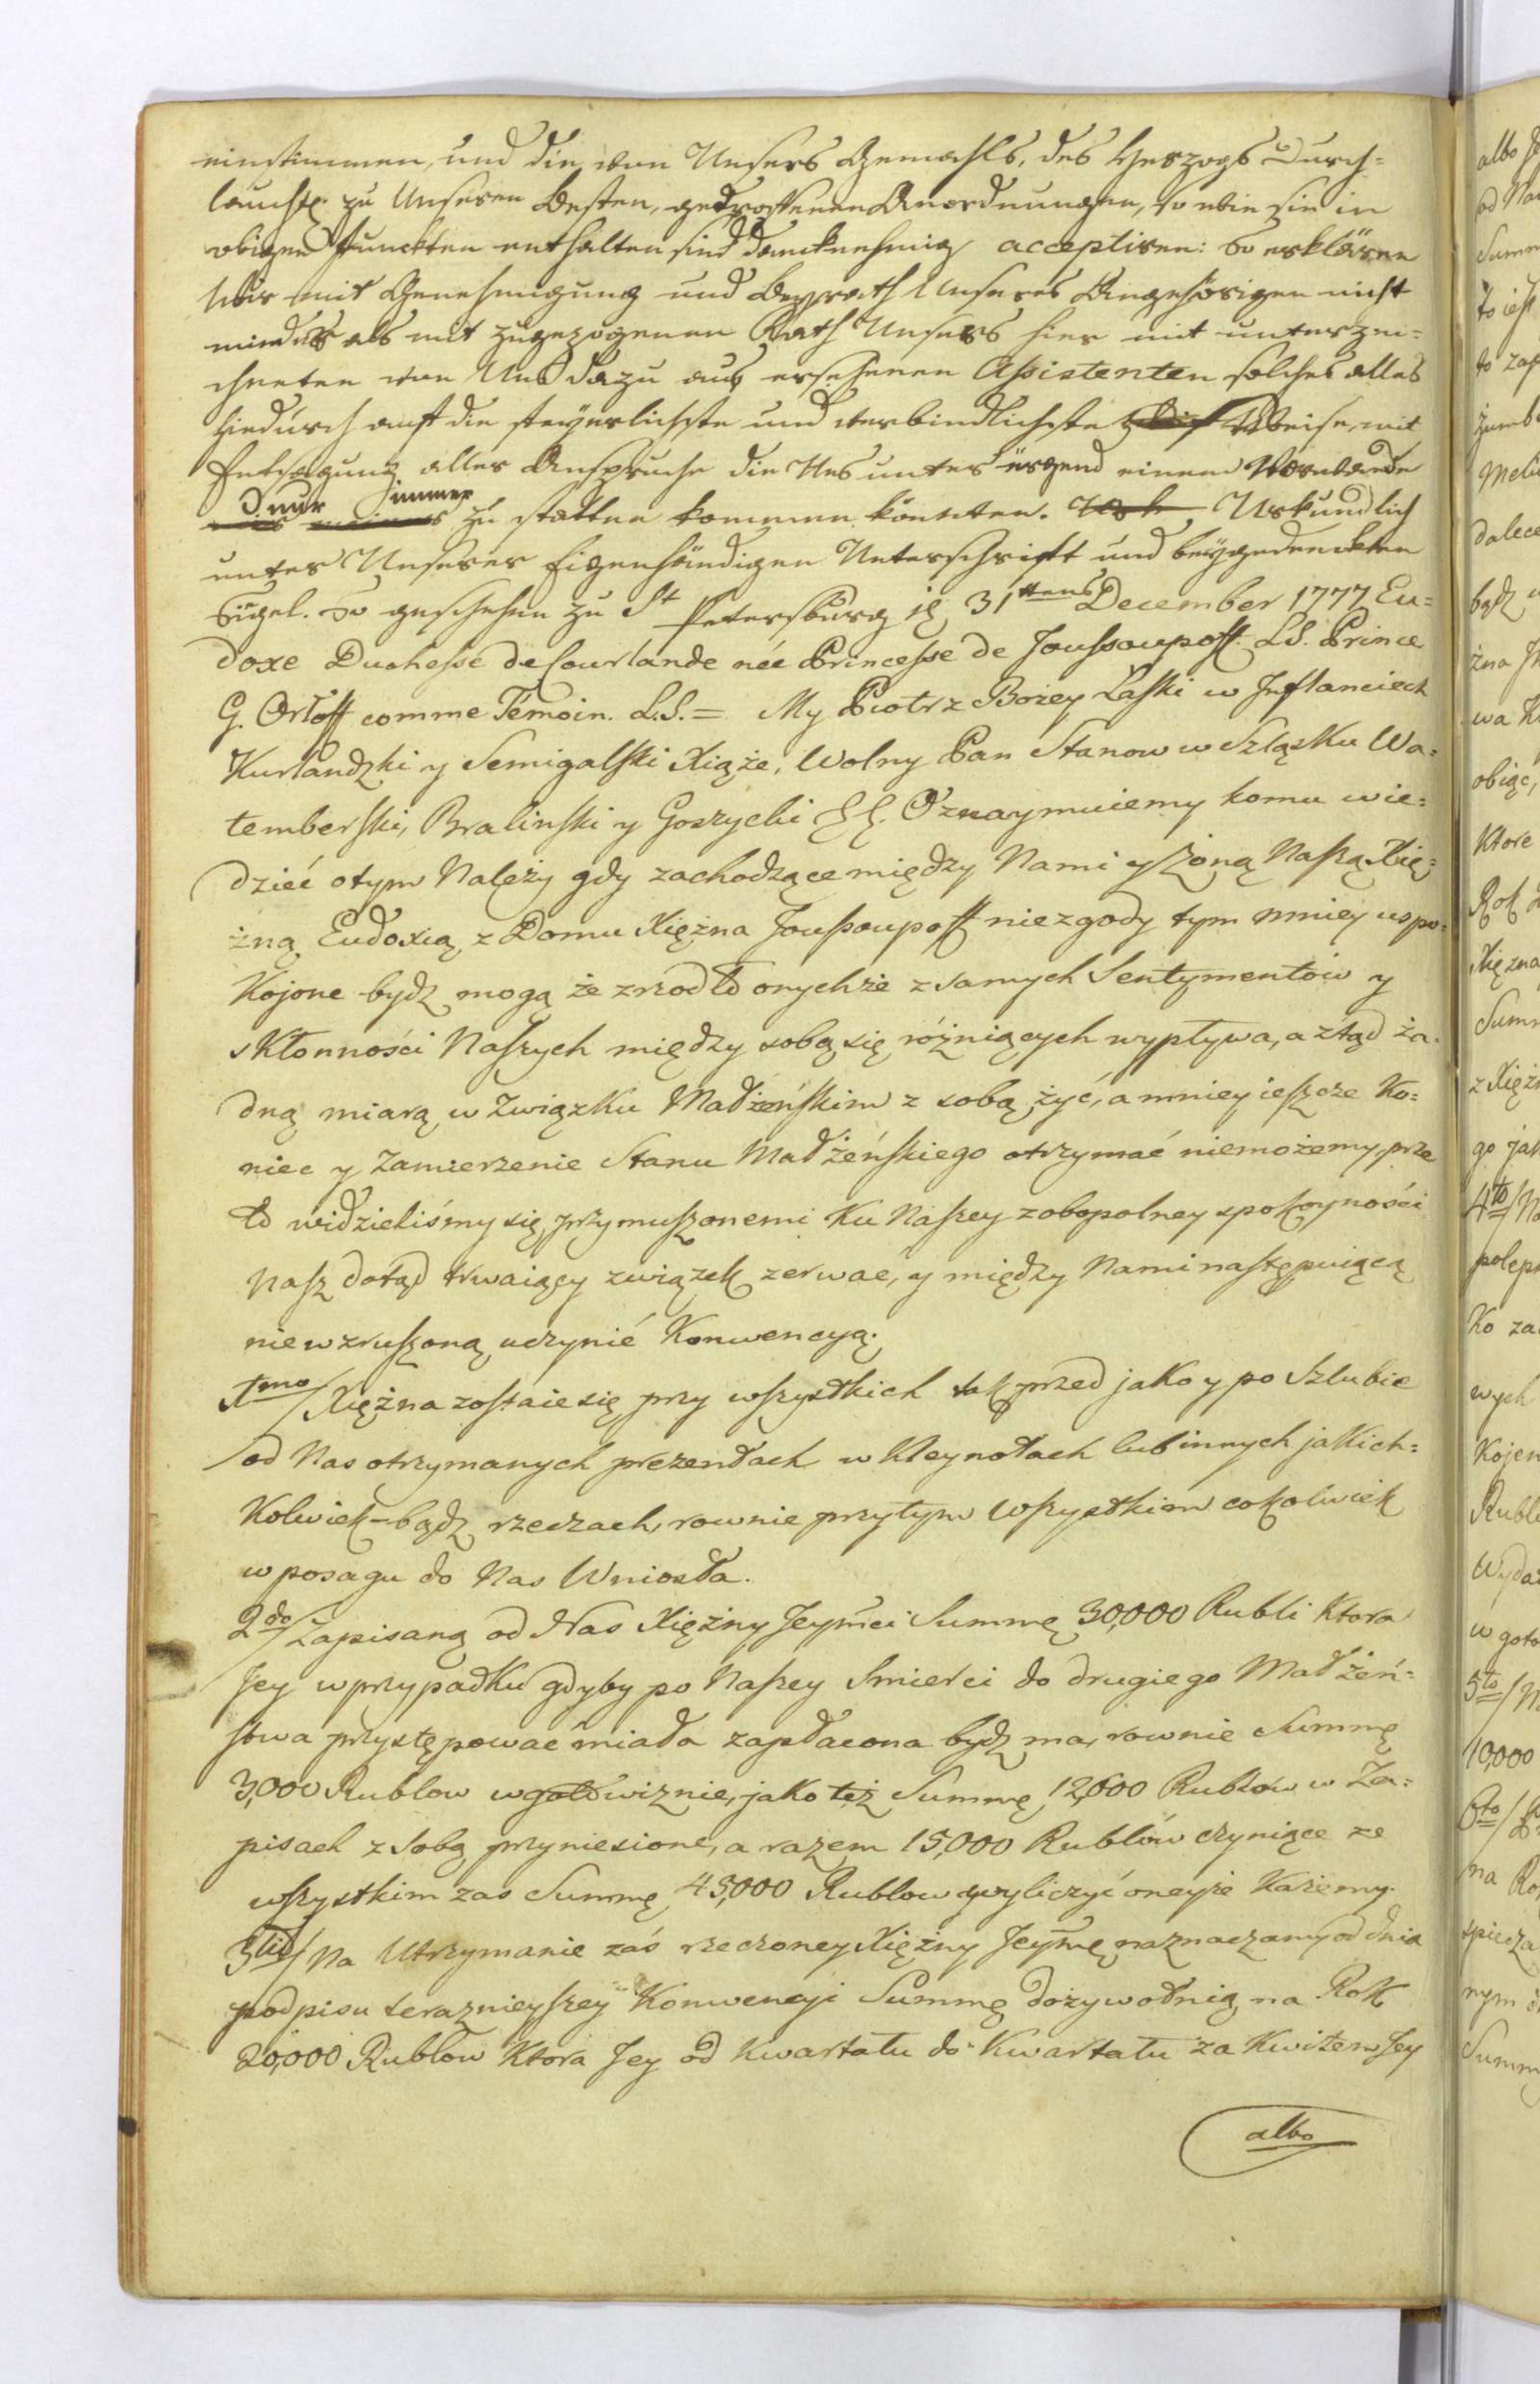 einstimmen, und die von Unsers Gemahls, des Herzogs Durch=
laucht. zu Unseren Besten, getroffenen Anordnungen, so wie sie in
obigen Punckten enthalten sind dancknehmig acceptiren: So erklären
Wir mit Genehmigung und Beyrath Unseres Angehörigen nicht
minder als mit zugezogenen Rath Unsers hier mit unterzei=
chneten von Uns dazu aus ersehenen Assistenten solches alles
hiedurch auf die feyerlichste und verbindlichste Weise, mit
Entsagung aller Ansprüche die Uns unter irgend einem Vorwande
nur immer zu statten kommen könnten. Urkundlich
unter Unserer Eigenhändigen Unterschrifft und beygedruckten
Sigel. So geschehen zu St Petersburg d. 31 tens December 1777 Eu=
doxe Duchesse de Courlande née Princesse de Joussoupoff. L.S. Prince
G. Orloff comme Temoin. L.S. = My Piotr z Bożey Łaski w Jnflanciech
Kurlandzki y Semigalski Xiąże, Wolny Pan Stanow w Szląsku Wa=
temberski, Bralinski y Goszycki &&. Oznaymuiemy komu wie=
dzieć otym Należy gdy zachodzące między Nami y Żoną Naszą Xię=
żną Eudoxią z Domu Xiężna Joussoupoff niezgody tym mniey uspo=
kojone bydz mogą że zrzodło onychże z samych Sentymentów y
skłonności Naszych między sobą się różniących wypływa, a ztąd ża=
dną miarą w Związku Małżeńskim z sobą żyć, a mniey ieszcze Ko=
niec y Zamierzenie Stanu Małżeńskiego otrzymać niemożemy, prze
to widzieliśmy się przymuszonemi Ku Naszey zobopolney spokoyności
Nasz dotąd trwaiący związek zerwać, y między Nami następuiącą
niewzruszoną uczynić Konwencyą.
1mo/ Xiężna zostaie się przy wszystkich tak przed jako y po Szlubie
od Nas otrzymanych prezentach w Kleynotach lub innych jakich=
Kolwiek-bądz rzeczach, rownie przytym Wszystkiem cokolwiek
w posagu do Nas Wniosła.
2do/ Zapisaną od Nas Xiężny Jeymci Summę 30,000 Rubli Ktora
Jey w przypadku gdyby po Naszey Smierci do drugiego Małżeń=
stwa przystępować miała zapłacona bydz ma, rownie Summę
3,000 Rublow w gotowiznie, jako też Summę 12,000 Rublów w Za=
pisach z Sobą przyniesione, a razem 15,000 Rublów czyniące ze
wszystkim zas Summę 45,000 Rublow wyliczyć oneyże Każemy.
3tio/ Na Utrzymanie zaś rzeczoney Xiężny Jeymę naznaczamy od dnia
podpisu teraznieyszey Konwencyi Summę dożywotnią na Rok
20,000 Rublow Ktora Jey od Kwartału do Kwartału za Kwitem Jey
albo